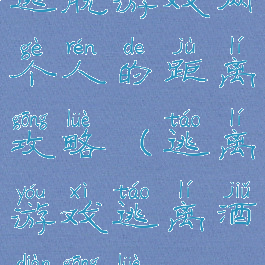 gè rén de jù lí
个人的距离
gōng lüè táo lí
攻略（逃离
yóu xì táo lí jiǔ
游戏逃离酒
diàn gōng lüè